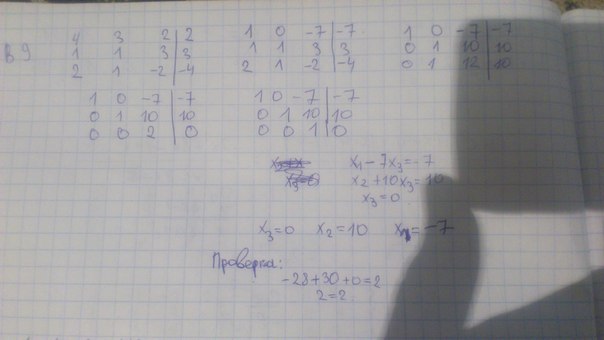 В 9
4 3 2 | 2
1 1 3 | 3
2 1 -2 | -4
1 0 -7 | -7
1 1 3 | 3
2 1 -2 | -4
1 0 -7 | -7
0 1 10 | 10
0 1 12 | 10
1 0 -7 | -7
0 1 10 | 10
0 0 2 | 0
1 0 -7 | -7
0 1 10 | 10
0 0 1 | 0
x₁-7x₃=-7
x₂+10x₃=10
x₃=0
x₃=0 x₂=10 x₁=-7
Проверка:
-28+30+0=2
2=2